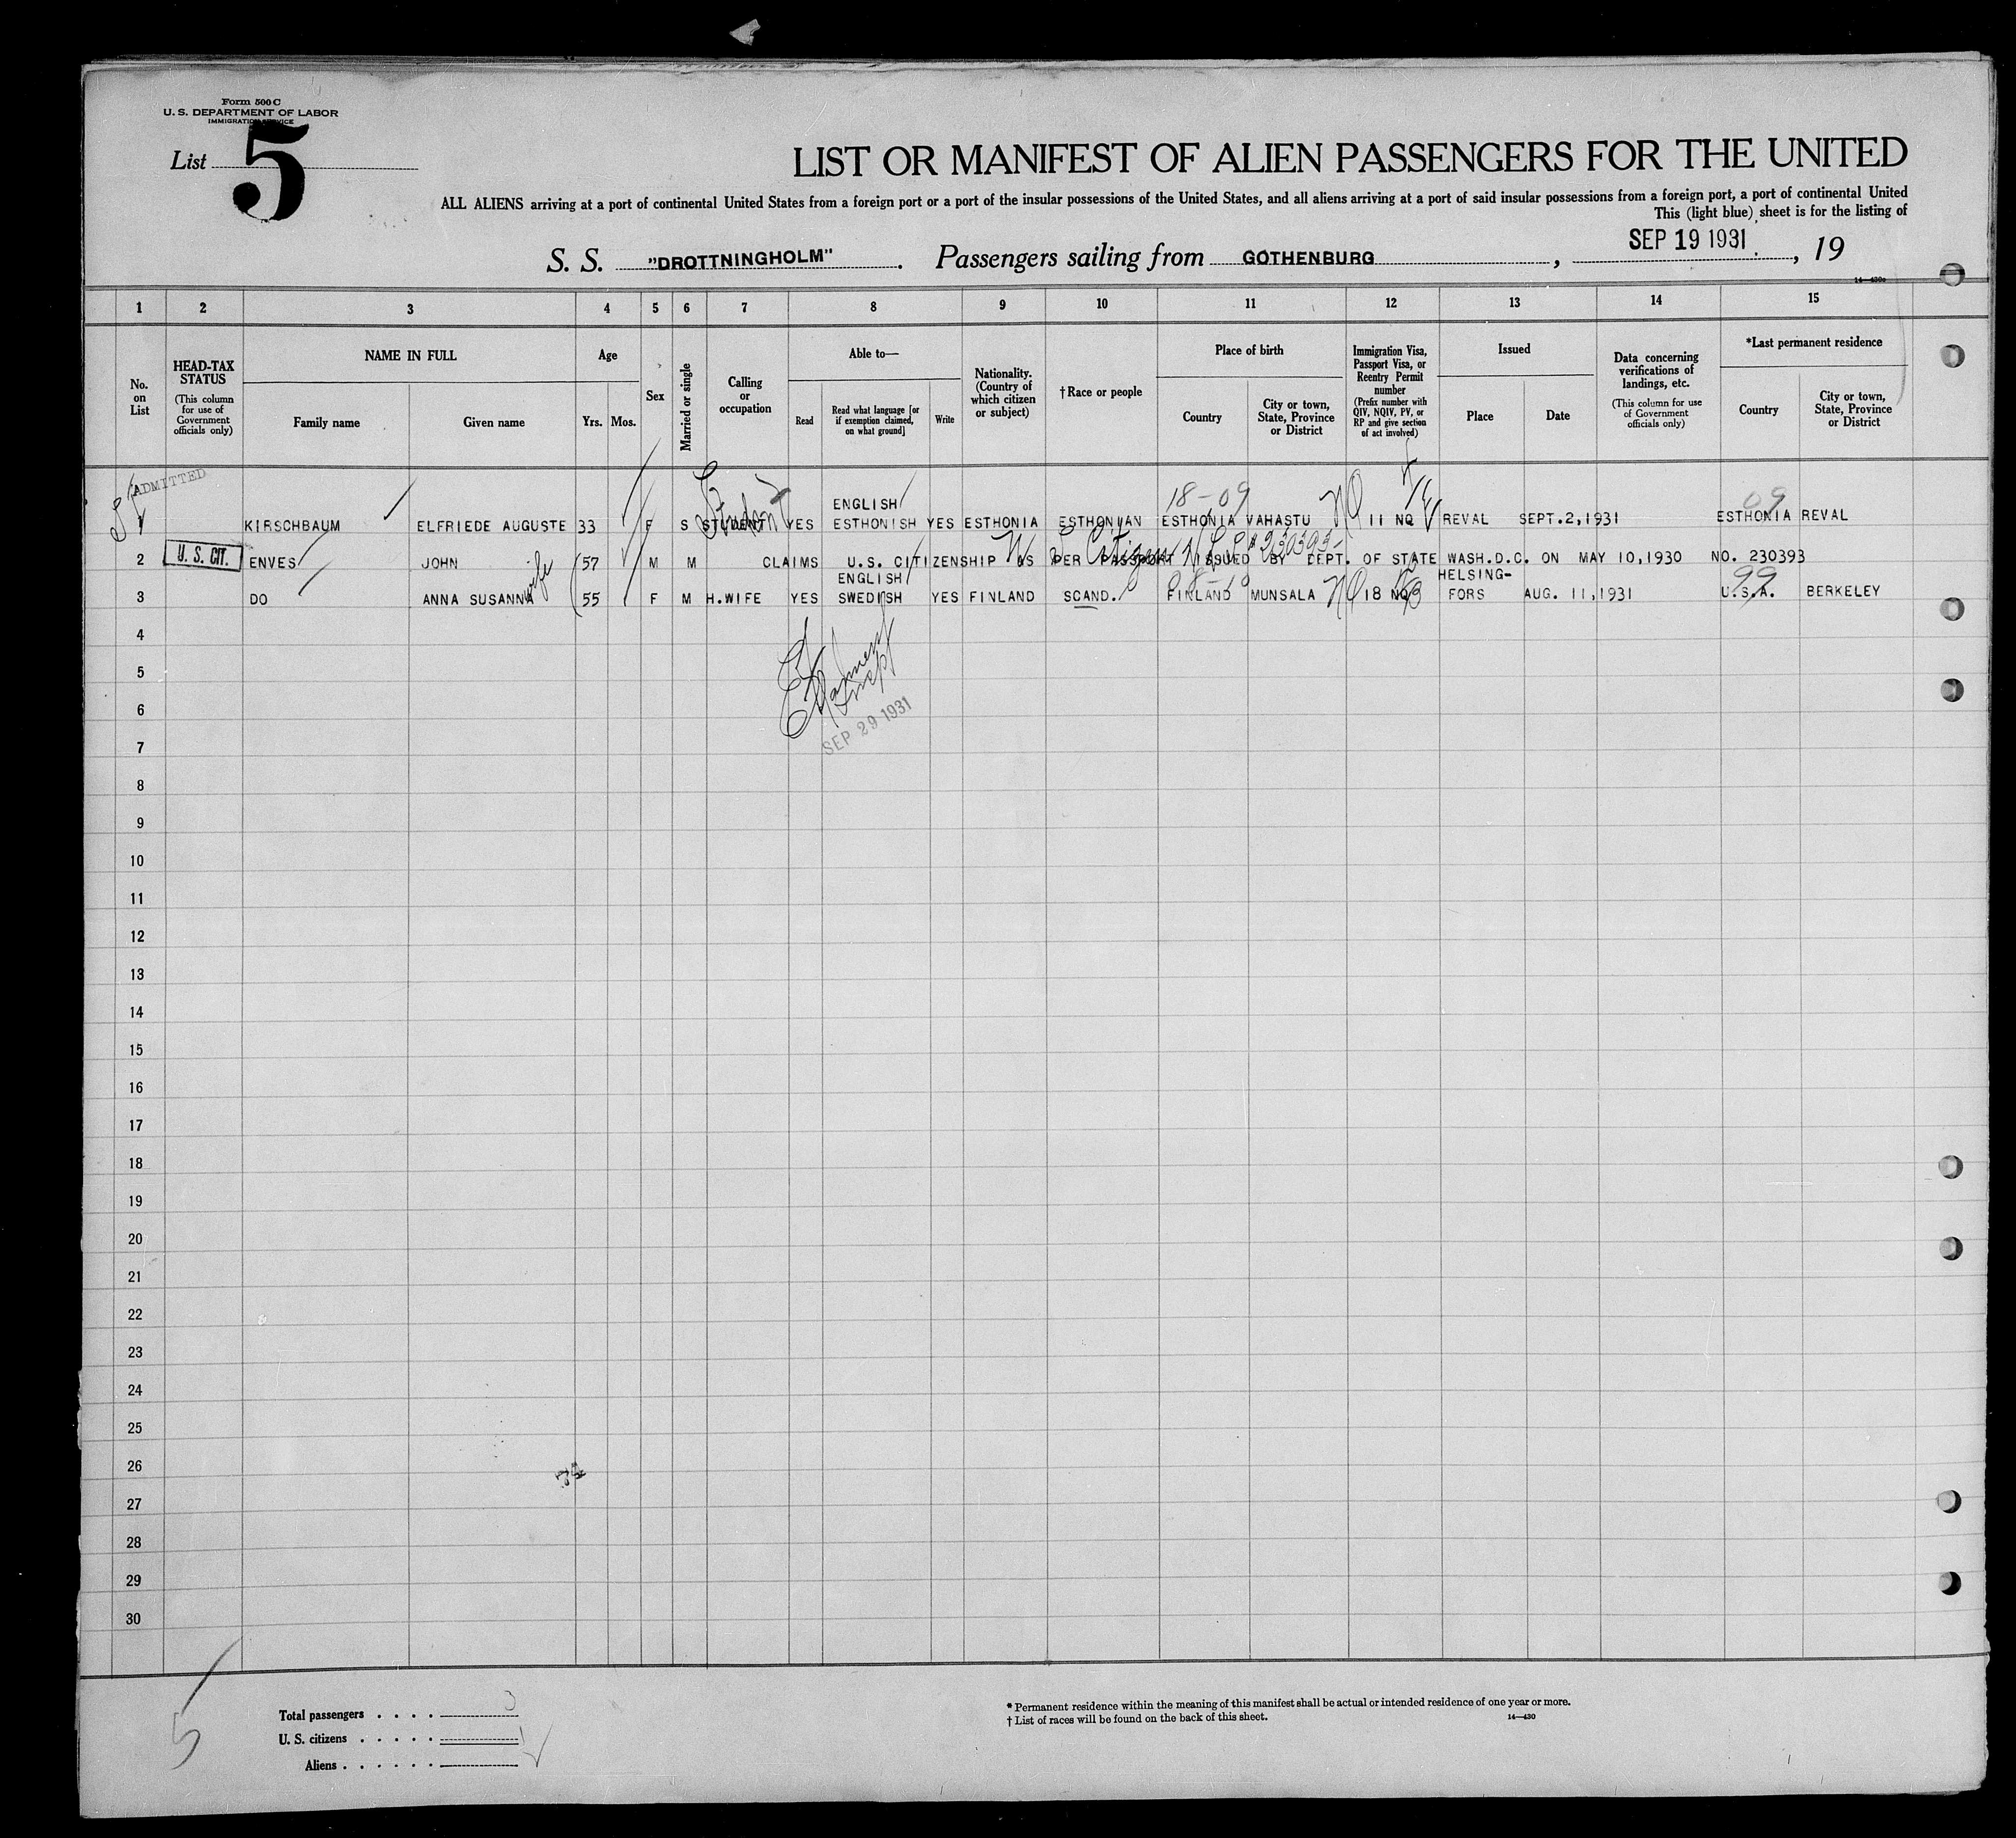 Form 500 C
U. S. DEPARTMENT OF LABOR
IMMIGRATION SERVICE
List 5
LIST OR MANIFEST OF ALIEN PASSENGERS FOR THE UNITED
ALL ALIENS arriving at a port of continental United States from a foreign port or a port of the insular possessions of the United States, and all aliens arriving at a port of said insular possessions from a foreign port, a port of continental United
This (light blue) sheet is for the listing of
S. S. "DROTTNINGHOLM". Passengers sailing from GOTHENBURG, SEP 19 1931, 19
14—430a
1 2 3 4 5 6 7 8 9 10 11 12 13 14 15
No. on List
HEAD-TAX STATUS (This column for use of Government officials only)
NAME IN FULL
Family name
Given name
Age
Yrs. Mos.
Sex
Married or single
Calling or occupation
Able to—
Read
Read what language [or if exemption claimed, on what ground]
Write
Nationality. (Country of which citizen or subject)
† Race or people
Place of birth
Country
City or town, State, Province or District
Immigration Visa, Passport Visa, or Reentry Permit number (Prefix number with QIV, NQIV, PV, or RP and give section of act involved)
Issued
Place
Date
Data concerning verifications of landings, etc. (This column for use of Government officials only)
*Last permanent residence
Country
City or town, State, Province or District
ADMITTED
18-09 09
ENGLISH
1 KIRSCHBAUM ELFRIEDE AUGUSTE 33 F S STUDENT Student YES ESTHONISH YES ESTHONIA ESTHONIAN ESTHONIA VAHASTU NQ 11 NQ REVAL SEPT.2,1931 ESTHONIA REVAL
U. S. Citizen #230393
2 U. S. CIT. ENVES JOHN 57 M M CLAIMS U.S. CITIZENSHIP AS PER PASSPORT ISSUED BY DEPT. OF STATE WASH.D.C. ON MAY 10,1930 NO. 230393
ENGLISH HELSING- 99
3 DO ANNA SUSANNA wife 55 F M H.WIFE YES SWEDISH YES FINLAND SCAND. FINLAND MUNSALA NQ 18 NQ FORS AUG. 11,1931 U.S.A. BERKELEY
4
5
6
SEP 29 1931
7
8
9
10
11
12
13
14
15
16
17
18
19
20
21
22
23
24
25
26
27
28
29
30
5
Total passengers . . . . 3
U. S. citizens . . . . . 1
Aliens . . . . . .
* Permanent residence within the meaning of this manifest shall be actual or intended residence of one year or more.
† List of races will be found on the back of this sheet.
14—430